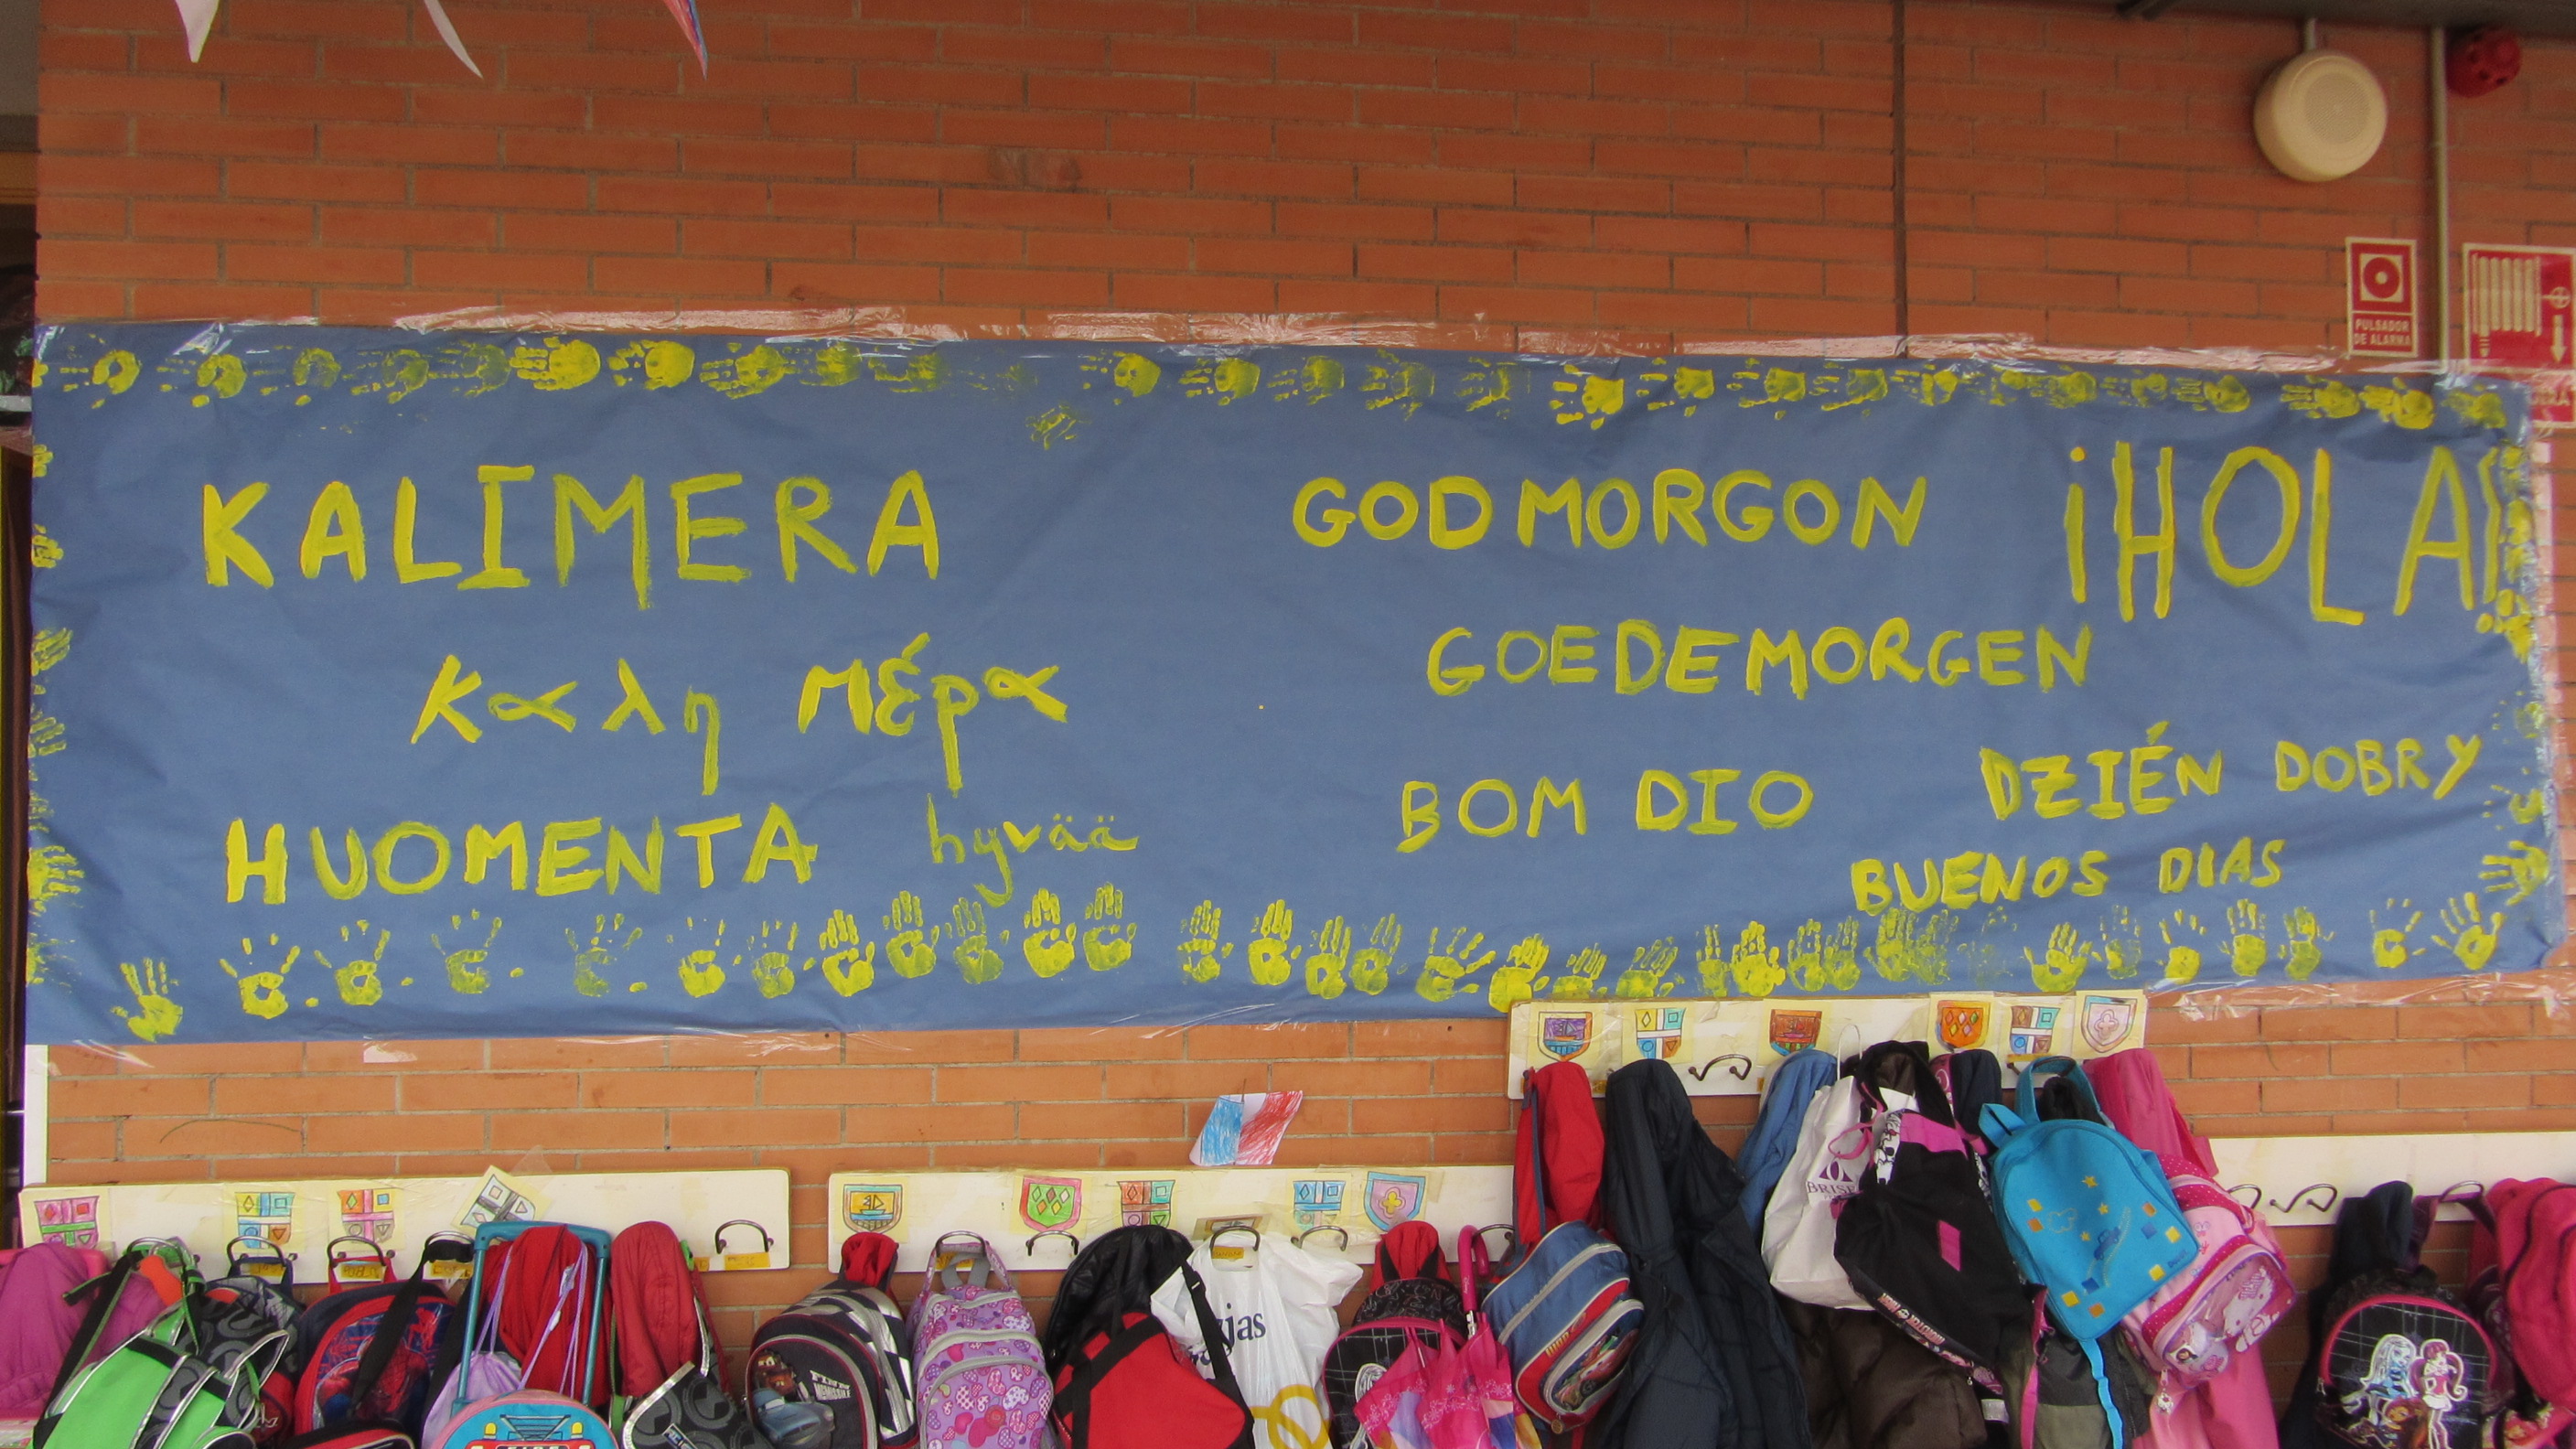 PULSADOR
DE ALARMA
KALIMERA
Καλη μέρα
HUOMENTA hyvää
GOD MORGON
¡HOLA!
GOEDEMORGEN
BOM DIO
DZIÉN DOBRY
BUENOS DIAS